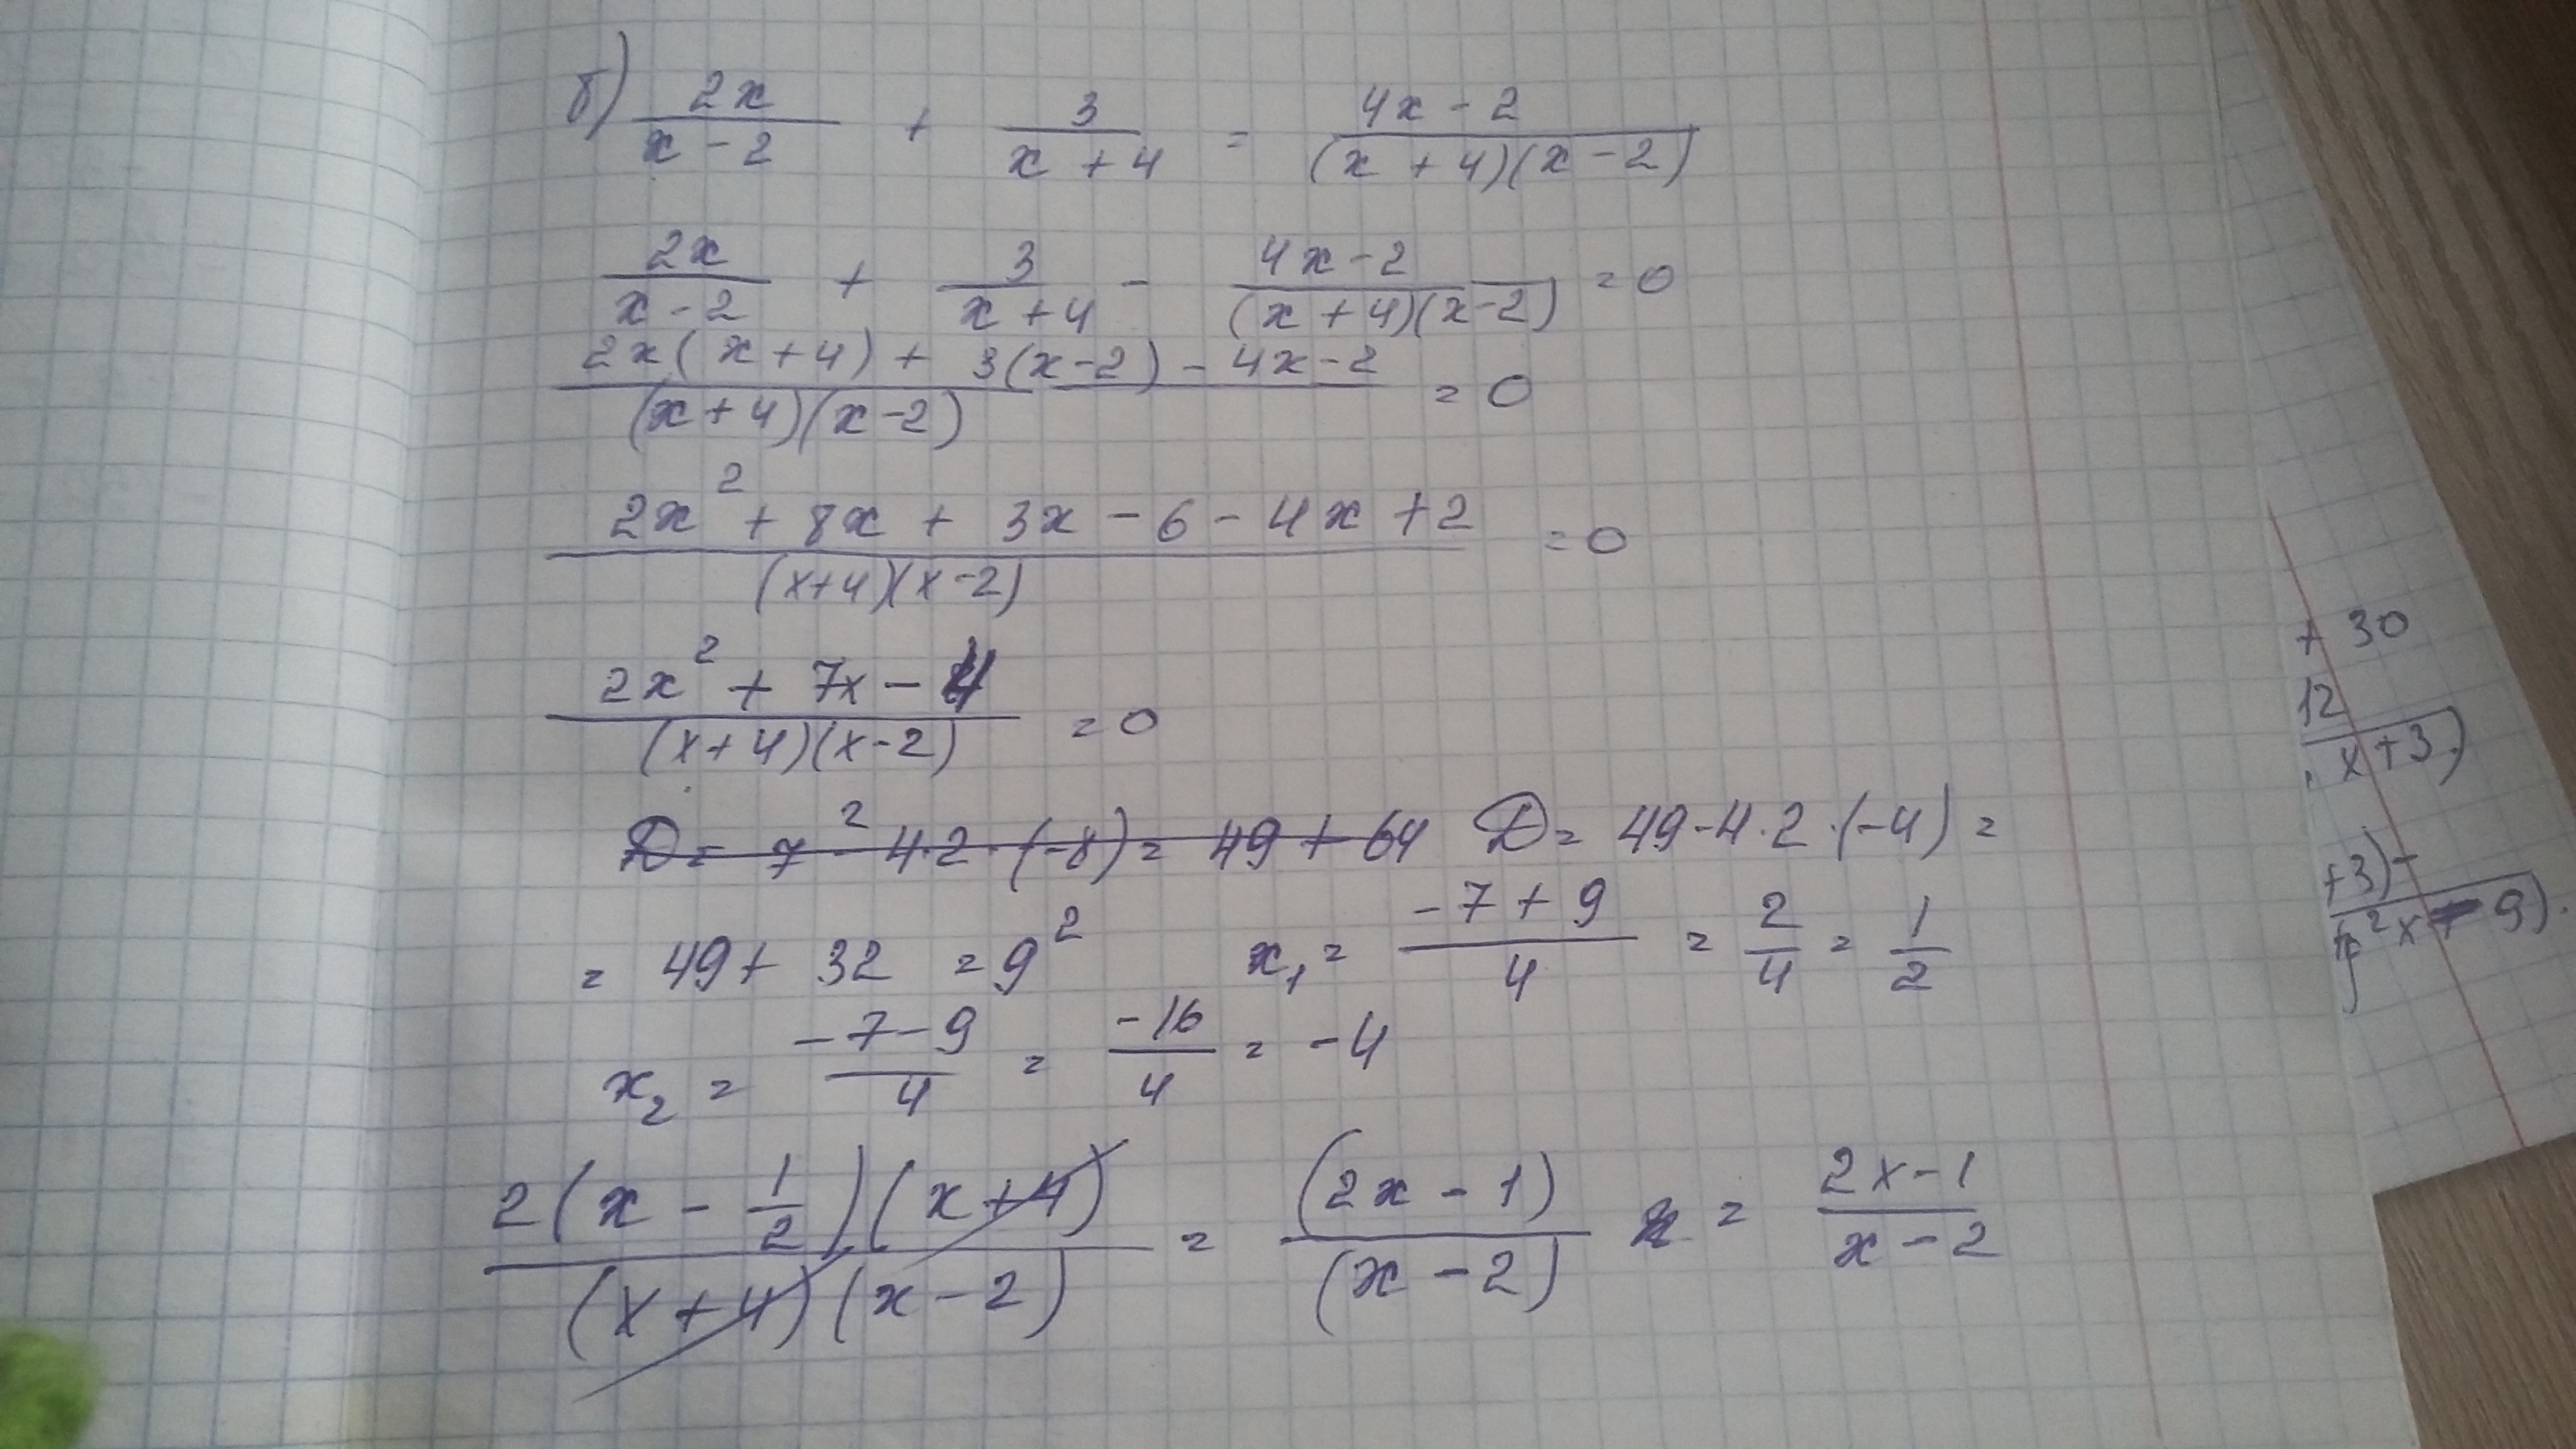 б) 2x/(x-2) + 3/(x+4) = (4x-2)/((x+4)(x-2))
2x/(x-2) + 3/(x+4) - (4x-2)/((x+4)(x-2)) = 0
(2x(x+4) + 3(x-2) - 4x-2)/((x+4)(x-2)) = 0
(2x² + 8x + 3x - 6 - 4x + 2)/((x+4)(x-2)) = 0
(2x² + 7x - 4)/((x+4)(x-2)) = 0
D = 7² - 4·2·(-8) = 49 + 64 D = 49-4·2·(-4) =
= 49 + 32 = 9² x₁ = (-7+9)/4 = 2/4 = 1/2
x₂ = (-7-9)/4 = -16/4 = -4
2(x - 1/2)(x+4)/((x+4)(x-2)) = (2x-1)/(x-2) = 2x-1/x-2
+ 30
12
x+3)
+3) -
² x 9)